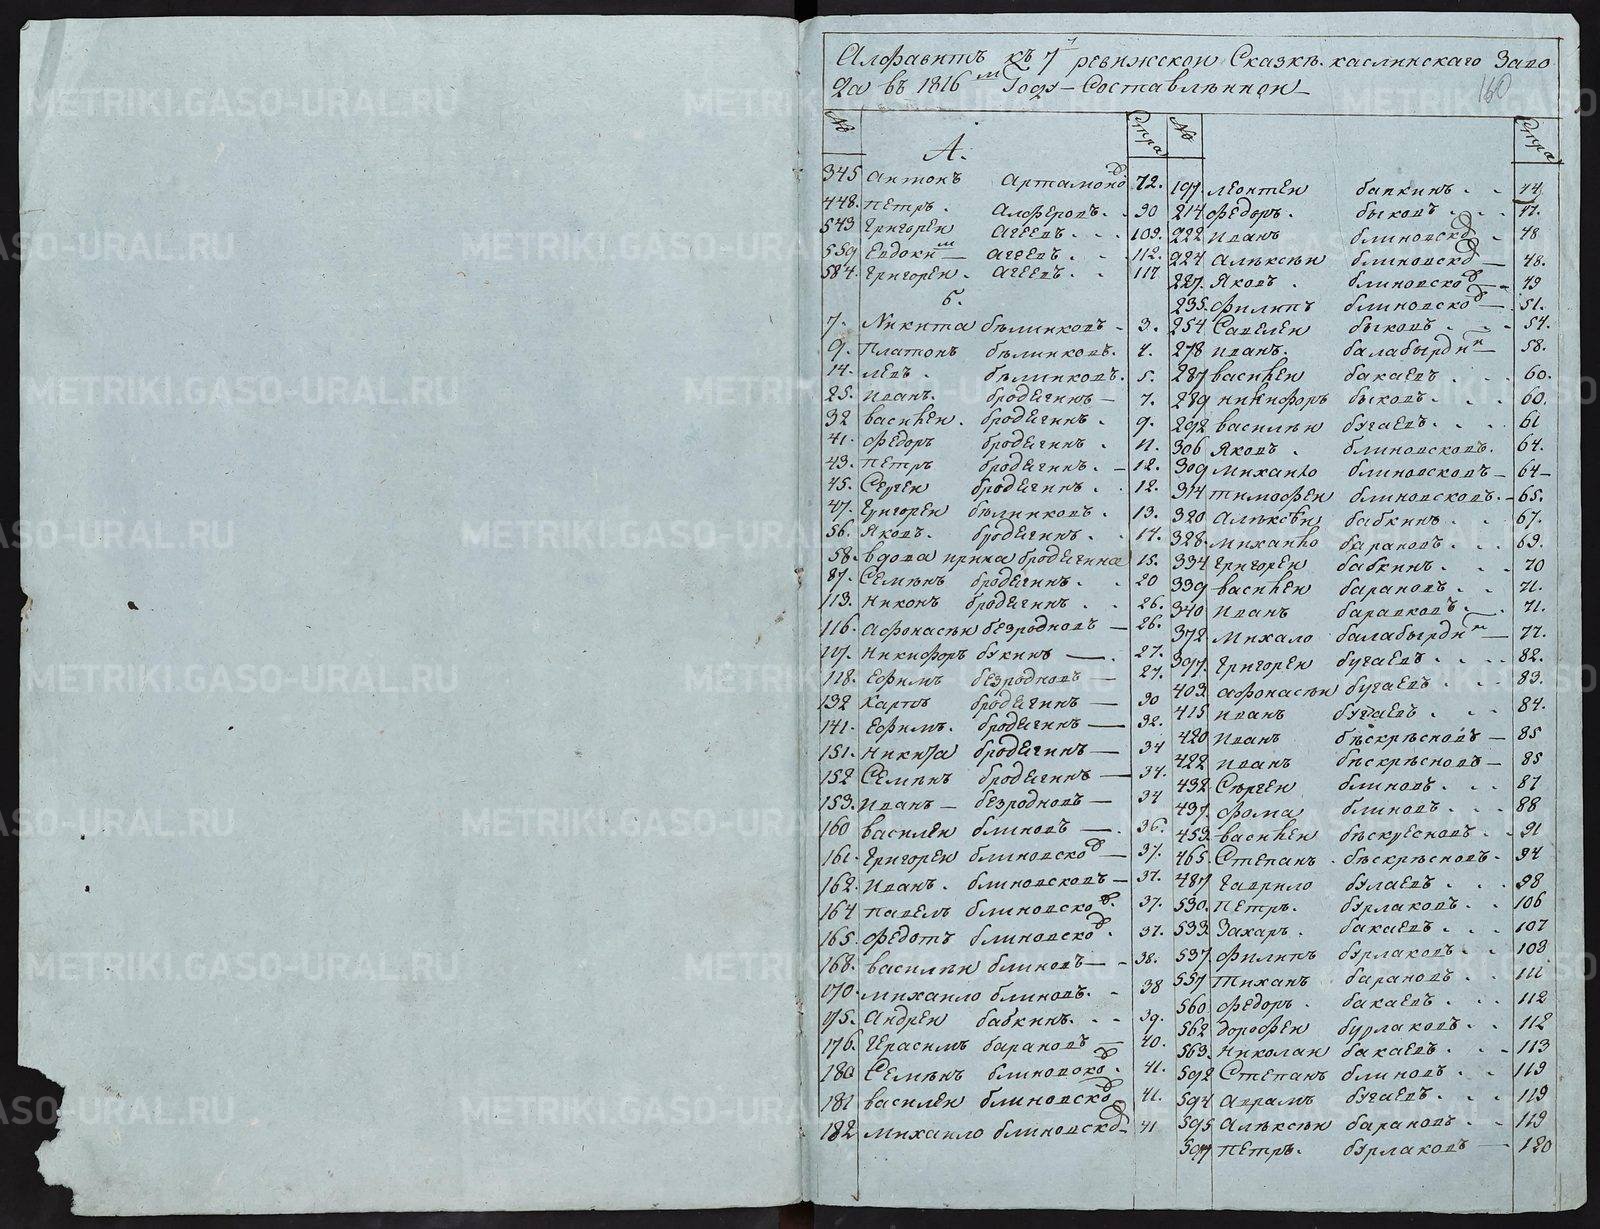 Алфавитъ къ 7 ревижской Сказкѣ каслинскаго Заво
да въ 1816 м Году Составлѣнной
160
№ Стра № Стра
А.
345 Антонъ Артамоно 72.
448. Петръ. Алферовъ. 90
543 Григорей Агеевъ. 109.
559 Евдоким Агеевъ. 112.
584. Григорей. Агеевъ. 117
б.
7. Никита бѣлинковъ 3.
9. Платонъ бѣлинковъ. 4.
14. левъ. бѣлинковъ. 5.
25. иванъ. бродягинъ 7.
32 василей. бродягинъ. 9.
41. федоръ бродягинъ 11.
43. петръ бродягинъ. 12.
45. Сергей бродягинъ. 12.
47. Григорей бѣлинковъ. 13.
56. Яковъ. бродягинъ. 14.
58. вдова ирина бродягина 15.
87. Семѣнъ бродягинъ. 20
113. никонъ бродягинъ. 26.
116. афонасѣй безродновъ 26.
117. никифоръ букинъ 27.
118. ефимъ безродновъ 27.
132 карпъ бродягинъ 30
141. ефимъ. бродягинъ 32.
151. никита бродягинъ 34
152 Семѣнъ бродягинъ 34.
153. иванъ безродновъ 34
160 василей блиновъ 36.
161. Григорей блиновско 37.
162. иванъ. блиновсковъ 37.
164 павелъ блиновско 37.
165. федотъ блиновско 37.
168. василѣй блиновъ 38.
170. михаило блиновъ. 38
175. Андрей бабкинъ. 39.
176. Герасимъ барановъ 40.
180 Семѣнъ блиновско. 41.
181 василей блиновско 41.
182 михаило блиновско 41
197. леонтей бапкинъ. 44.
214 федоръ. быковъ. 47.
222 иванъ блиновско 48
224 алѣксѣй блиновско 48.
227. Яковъ. блиновско 49
235. филипъ блиновско 51.
254 Савелей быковъ. 54.
278 иванъ. балабырдин 58.
287 василей бакаевъ. 60.
289 никифоръ быковъ. 60.
292 василѣй бугаевъ. 61
306 Яковъ. блиновсковъ. 64.
309 михаило блиновсковъ 64
314 тимофей блиновсковъ. 65.
320 Алѣксѣй бабкинъ. 67.
328. михаило барановъ. 69.
334 Григорей бабкинъ. 70
339 василей барановъ. 71.
340 иванъ барановъ. 71.
372 михало балабырдин 77.
397. Григорей бугаевъ. 82.
403 афонасѣй бугаевъ. 83.
415 иванъ бугаевъ. 84.
420 иванъ бѣскрѣсновъ 85
422 иванъ бѣскрѣсновъ 85
432 Сѣргей блиновъ. 87
437. фома блиновъ. 88
453. василей бѣскресновъ. 91
465. Степанъ. бѣскрѣсновъ. 94
487 Гаврило булаевъ. 98
530. петръ. бурлаковъ. 106
533 Захаръ. бакаевъ. 107
537. филипъ бурлаковъ. 108
557 тиханъ барановъ. 111
560 федоръ. бакаевъ. 112
562 дорофей бурлаковъ. 112
563. николай бакаевъ. 113
592 Степанъ блиновъ. 119
594 аврамъ бугаевъ. 119
595 Алѣксѣй барановъ. 119
597 петръ. бурлаковъ 120